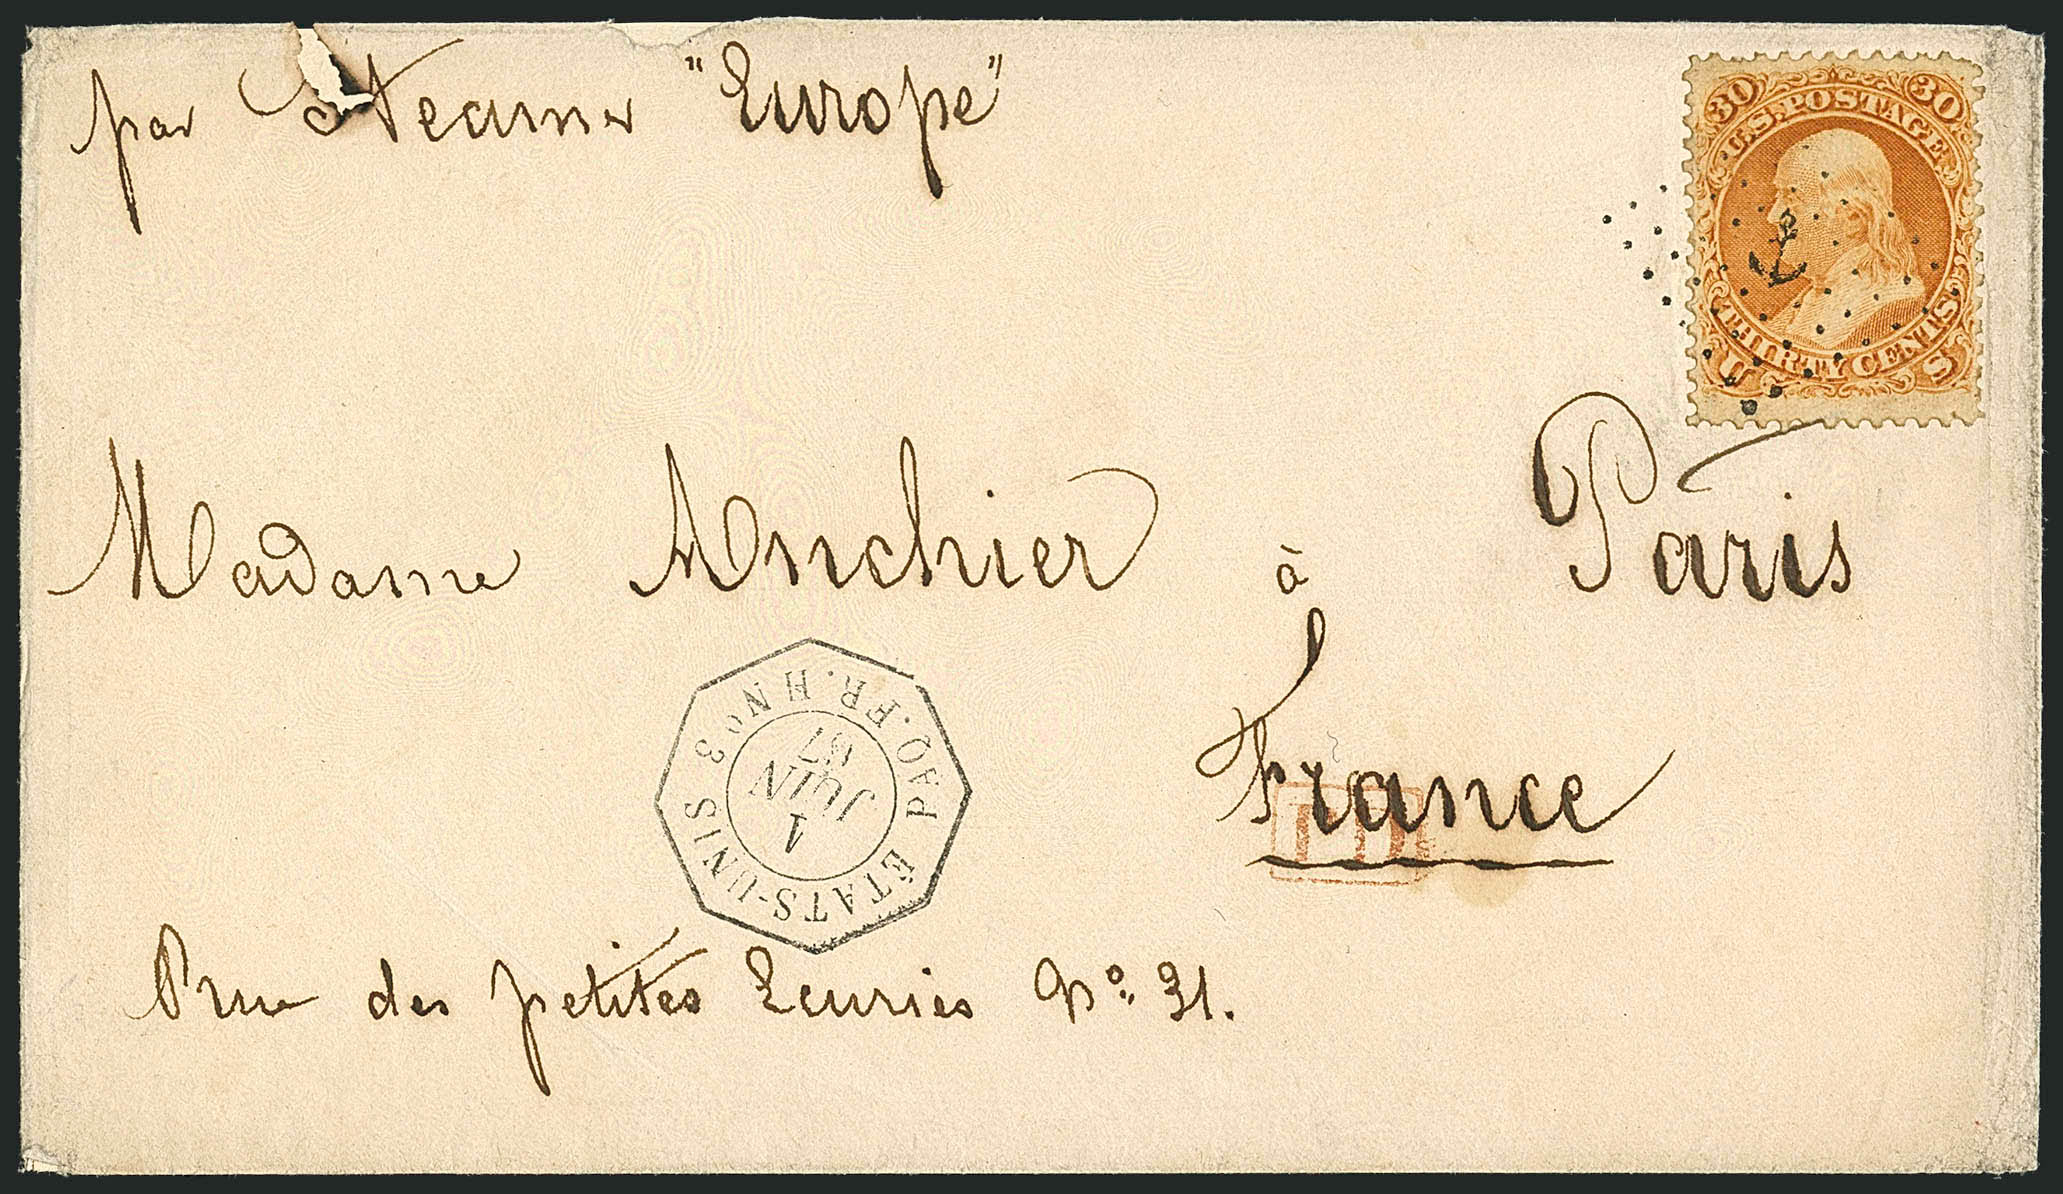 par Steamer "Europe"
30 U.S. POSTAGE 30
THIRTY CENTS
U S
Madame Anchier à Paris
France
PD
ÉTATS-UNIS PAQ. FR. H No 3
1
JUIN
67
rue des petites Ecuries No. 31.